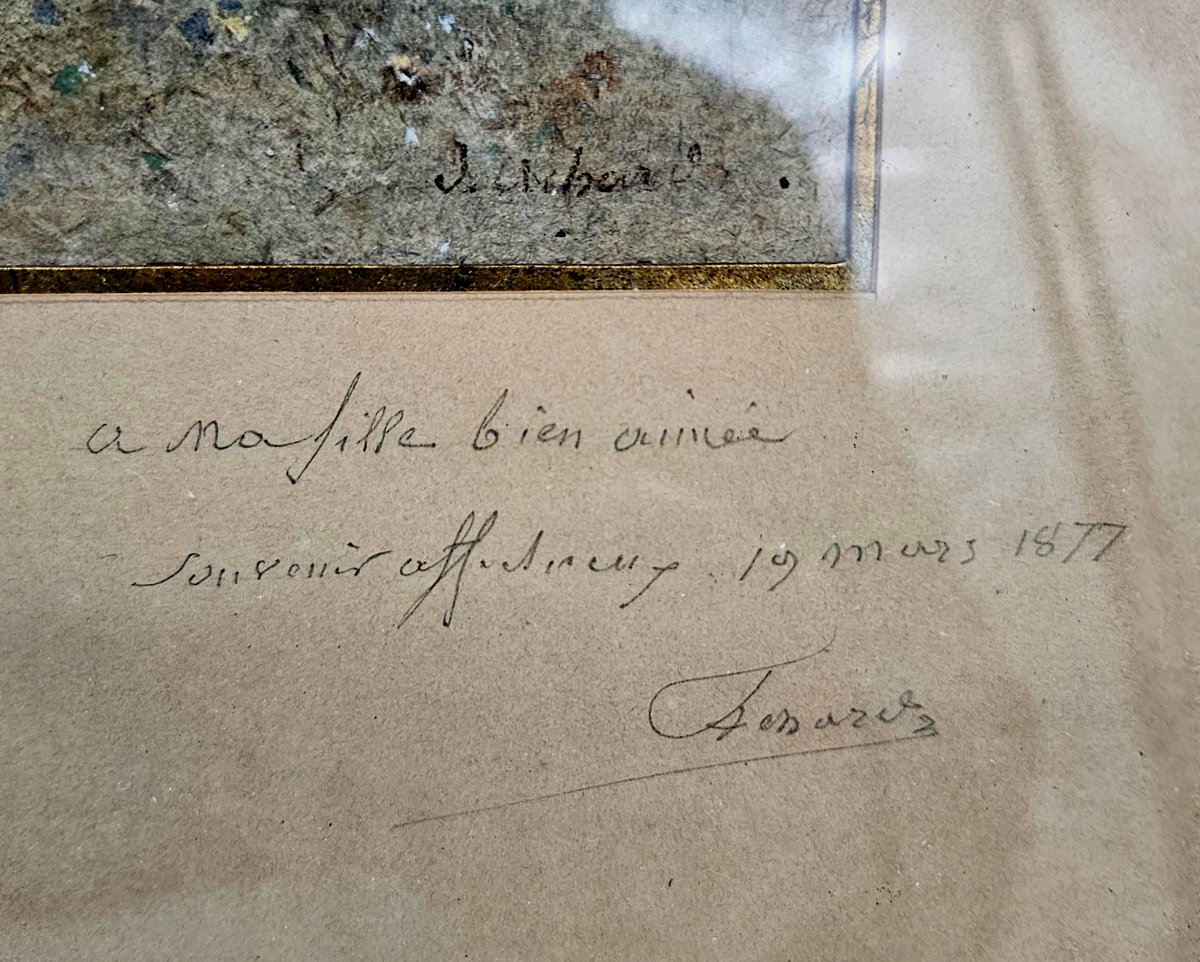 a Ma fille bien aimée
souvenir affectueux 19 mars 1877